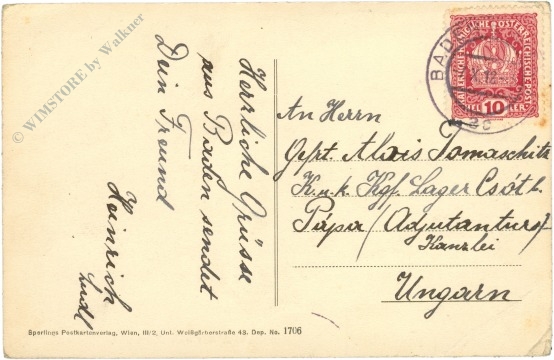 © WIMSTORE by Walkner
Herzliche Grüsse
aus Baden sendet
Dein Freund
Heinrich
BADEN
KAISERLICHE KÖNIGLICHE ÖSTERREICHISCHE POST
10
An Herrn
Gefrt. Alois Tomaschitz
K.u.k. Kgf. Lager Csót b.
Pápa (Adjutantur
Kanzlei
Ungarn
Sperlings Postkartenverlag, Wien, III/2, Unt. Weißgärberstraße 43. Dep. No. 1706